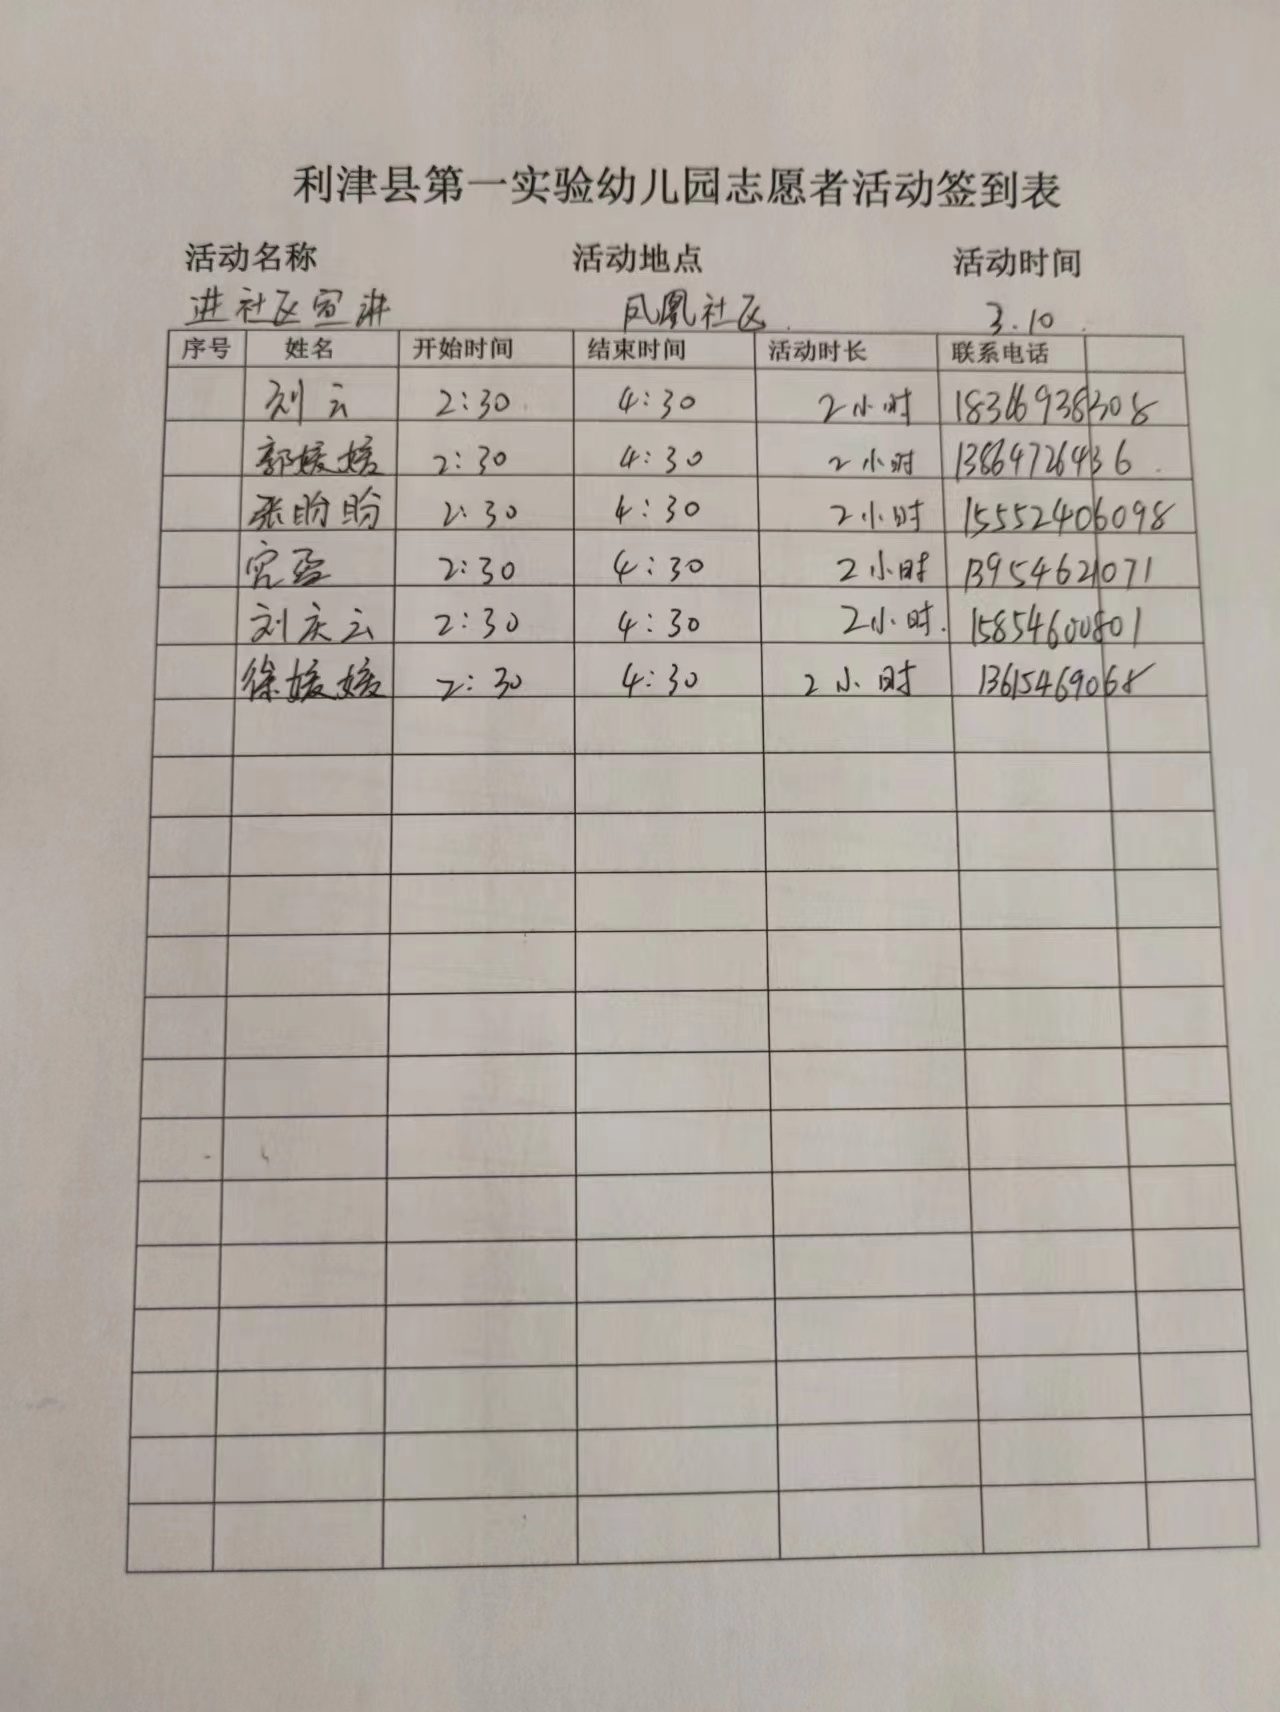 利津县第一实验幼儿园志愿者活动签到表
活动名称 活动地点 活动时间
进社区宣讲 凤凰社区 3.10
序号 姓名 开始时间 结束时间 活动时长 联系电话
刘云 2:30 4:30 2小时 18366938308
郭媛媛 2:30 4:30 2小时 13864726436
张盼盼 2:30 4:30 2小时 15552406098
2:30 4:30 2小时 13954621071
刘庆云 2:30 4:30 2小时. 15854600801
徐媛媛 2:30 4:30 2小时 13615469068